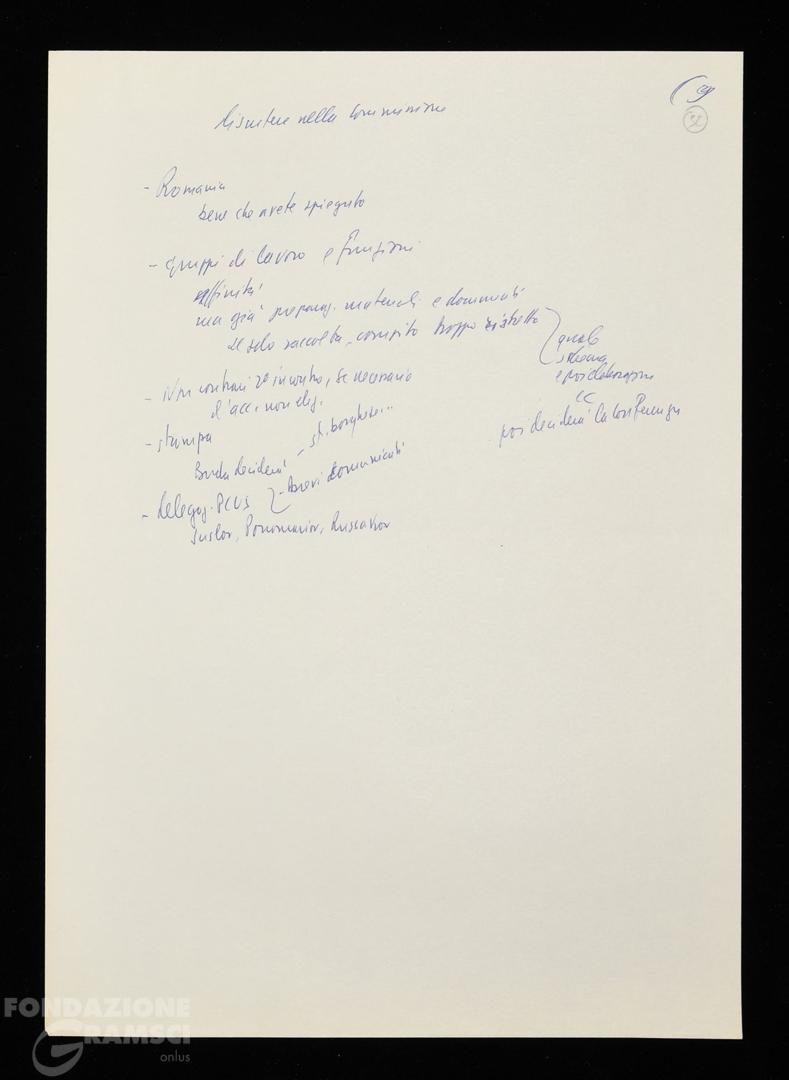 Discutere nella Commissione
- Romania
bene che avete spiegato
- gruppi di lavoro e funzioni
affinità
ma già preparaz. materiali e documenti
se solo raccolta, compito troppo ristretto
quale
schema
e poi elaborazione
CC
poi deciderà la Conferenza
- Non contrari 2º incontro, se necessario
d'acc.
- stampa
Buda deciderà - st. borghese...
- brevi comunicati
- Delegaz. PCUS
Suslov, Ponomariov, Rusakov
FONDAZIONE
GRAMSCI
onlus